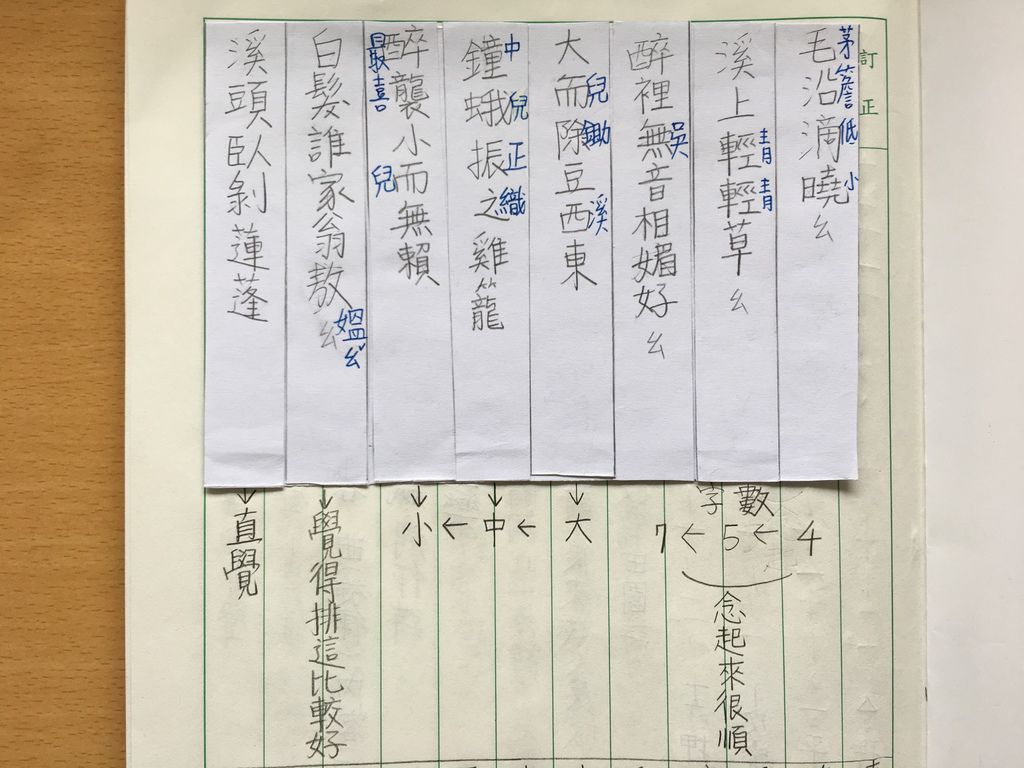 訂正
茅簷低小
毛沿滴曉ㄠ
青青
溪上輕輕草ㄠ
吳
醉裡無音相媚好ㄠ
兒鋤溪
大而除豆西東
中兒正織
鐘蛾振之雞籠
最喜兒
醉襲小而無賴
媼ㄠˇ
白髮誰家翁敖ㄠ
溪頭臥剝蓮蓬
字數
4←5←7
念起來很順
大←中←小
覺得排這比較好
直覺